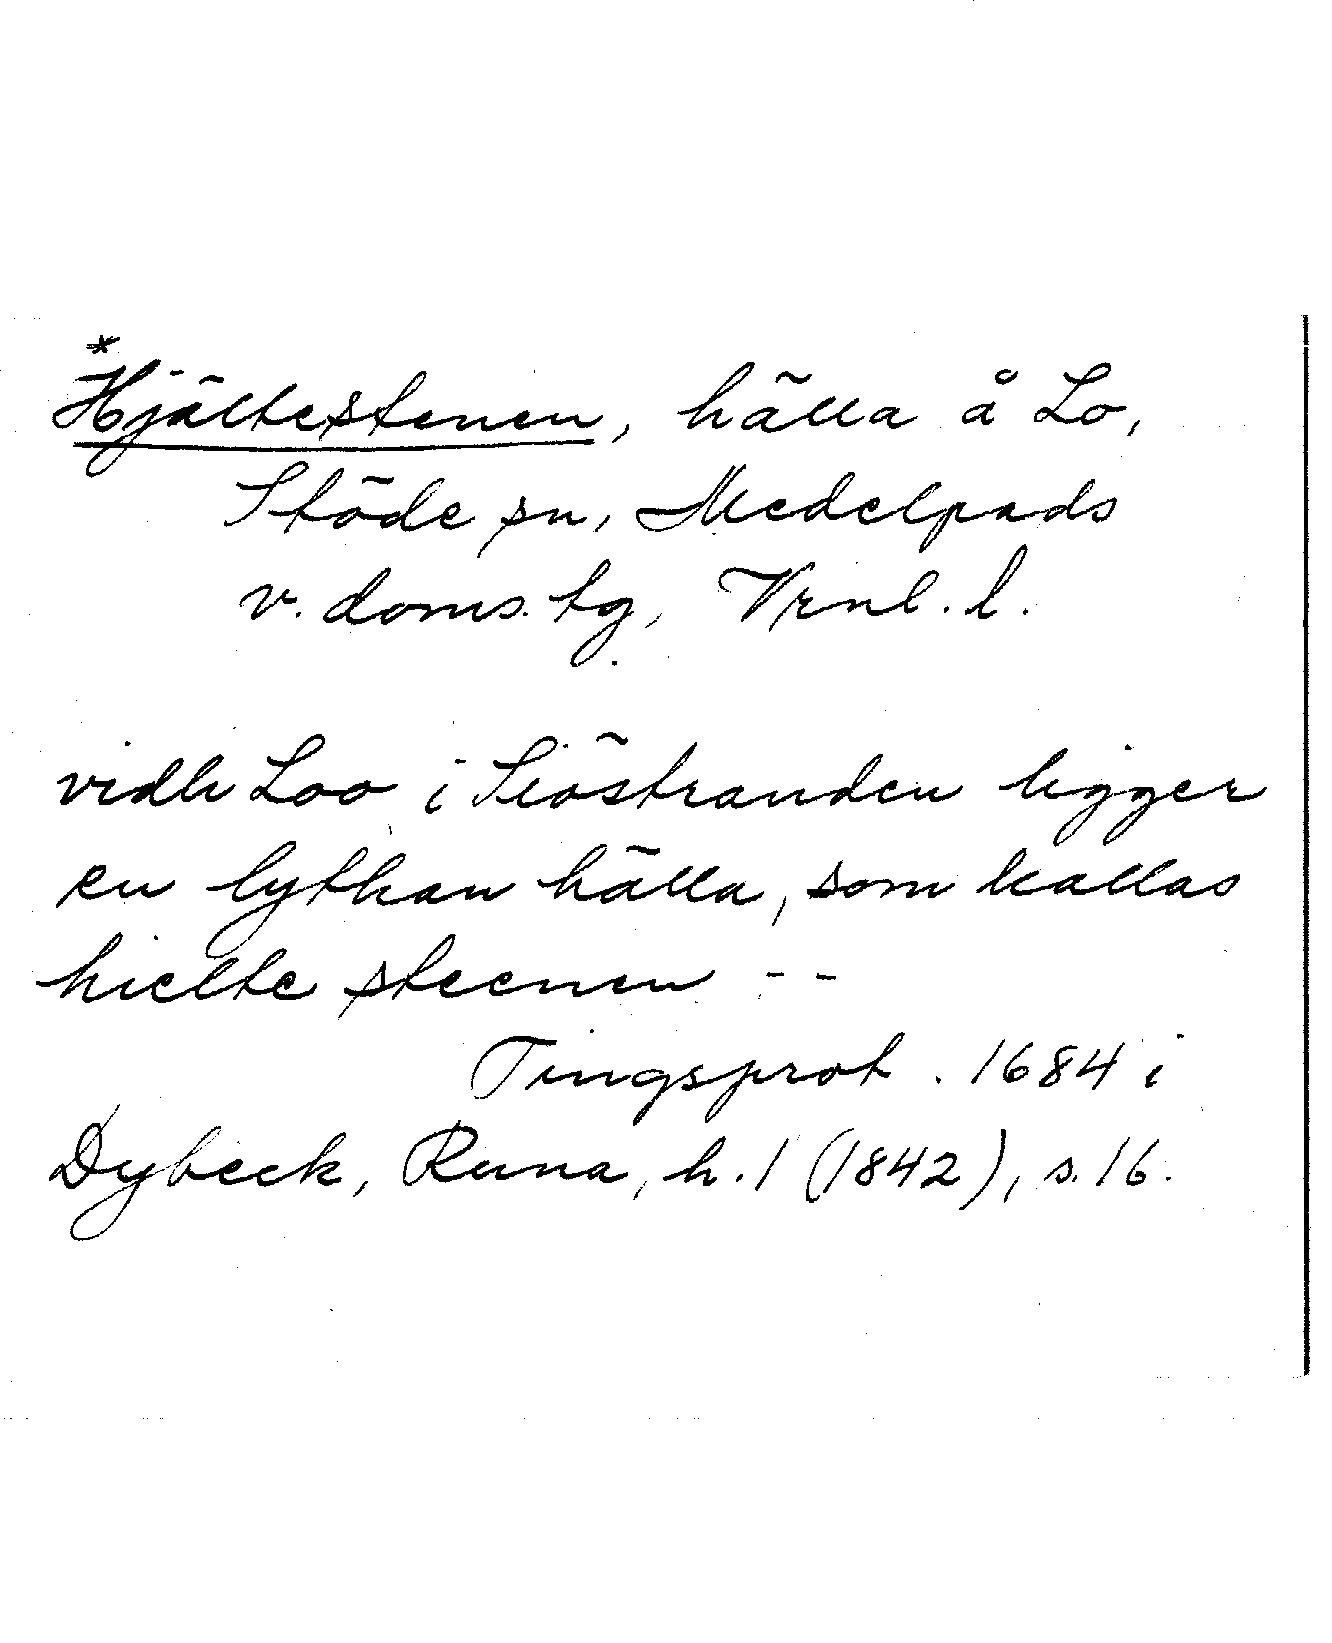 *
Hjältestenen, hälla å Lo,
Stöde sn, Medelpads
v. doms. tg, Vrnl. l.
vidh Loo i Siöstranden ligger
en lythan hälla, som kallas
hielte steenen --
Tingsprot. 1684 i
Dybeck, Runa, h. 1 (1842), s. 16.